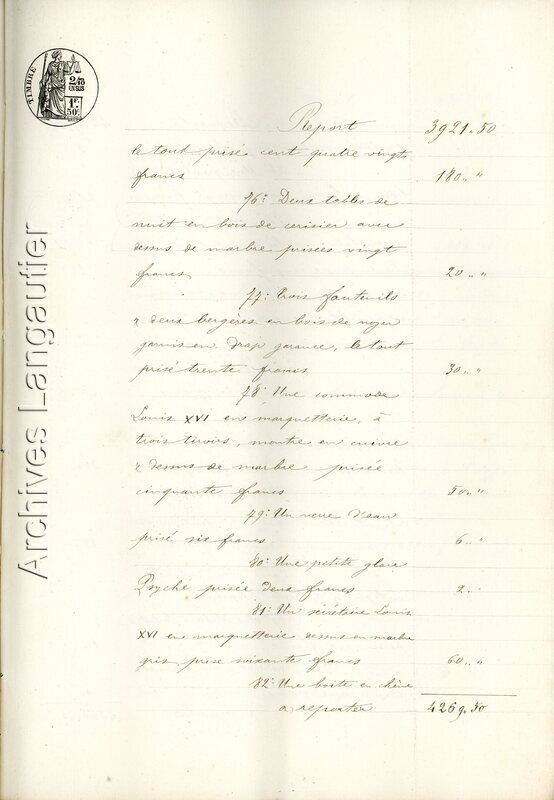 TIMBRE
2/10
EN SUS
1F.
50c.
Archives Langautier
Report 3921.50
le tout prisé cent quatre vingt
francs 180 .. "
76° Deux tables de
nuit en bois de cerisier avec
dessus de marbre prisées vingt
francs 20 .. "
77° Trois fauteuils
& deux bergères en bois de noyer
garnis en drap garance, le tout
prisé trente francs 30 .. "
78° Une commode
Louis XVI en marquetterie, à
trois tiroirs, montée en cuivre
& dessus de marbre prisée
cinquante francs 50 .. "
79° Un verre d'eau
prisé six francs 6 .. "
80° Une petite glace
Psyché prisée deux francs 2 .
81° Un sécrétaire Louis
XVI en marquetterie dessus en marbre
gris prisé soixante francs 60 .. "
82° Une boite en chêne
a reporter 4269.50